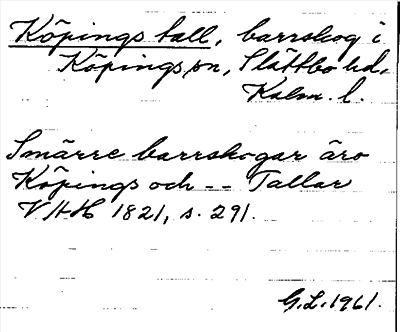 Köpings tall, barrskog i
Köpings sn, Slättbo hd.
Kalm. l.
Smärre barrskogar äro
Köpings och -- Tallar
VHH 1821, s. 291.
G.L. 1961.